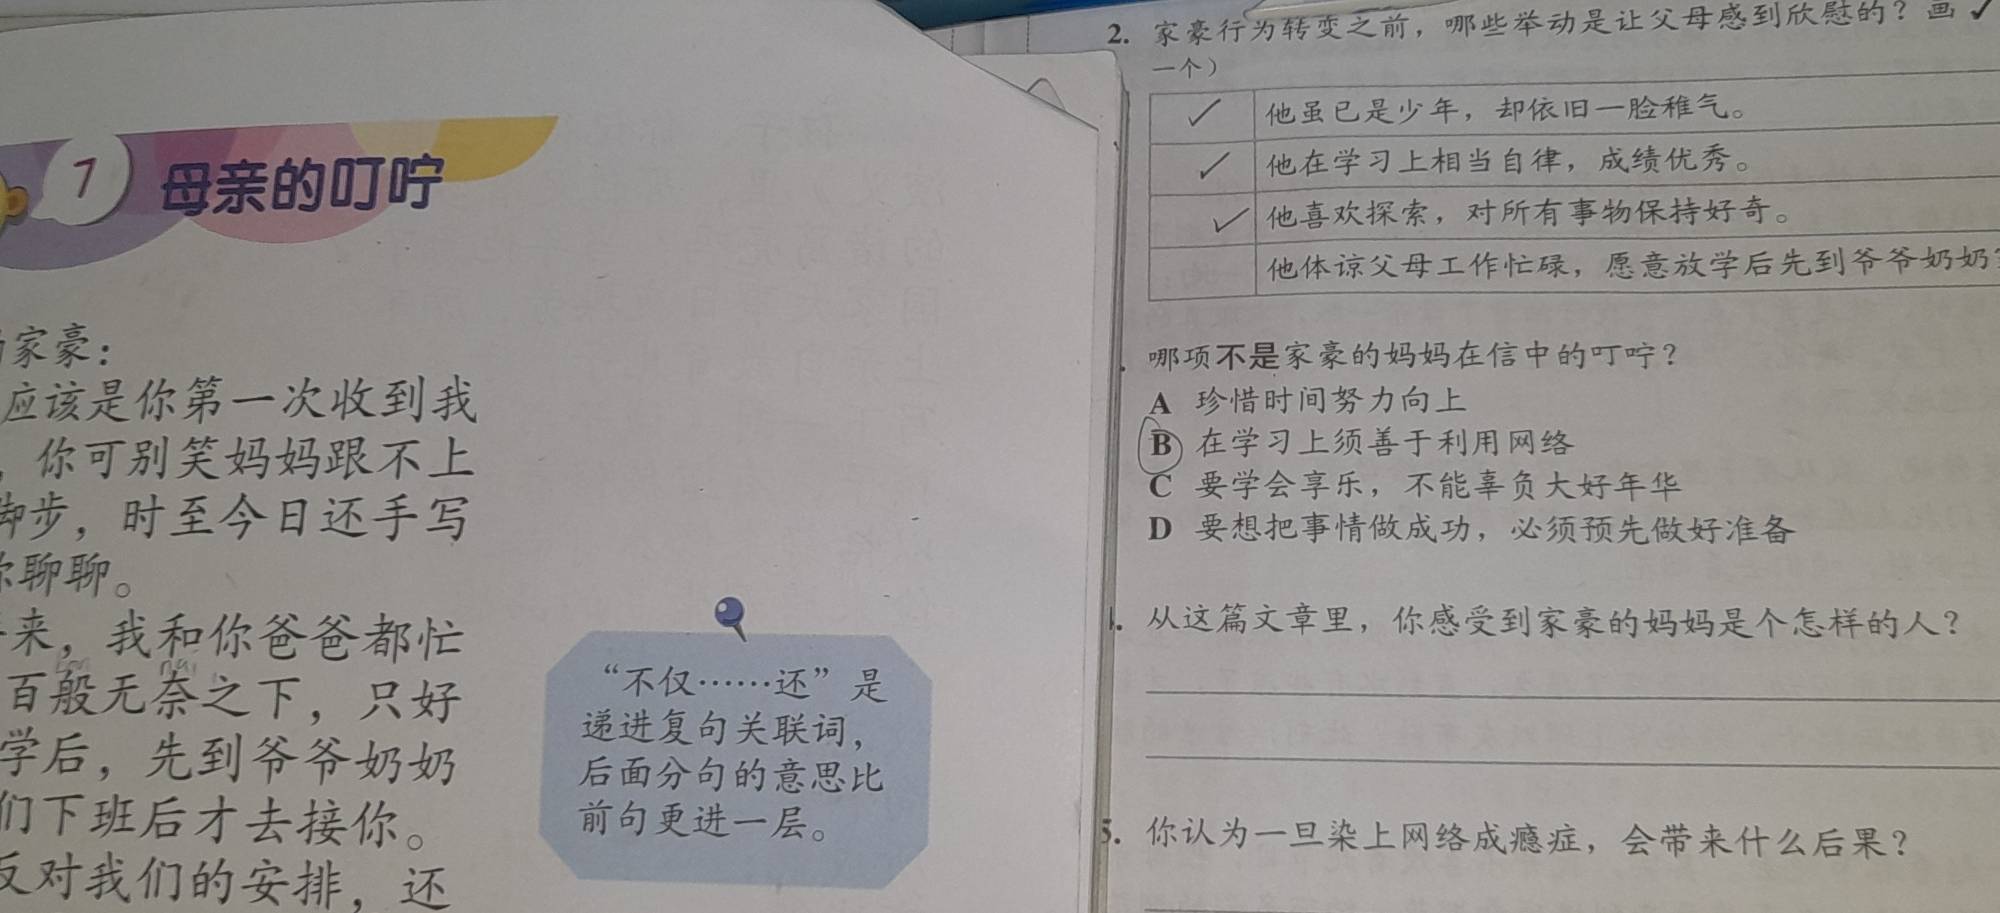 7 母亲的叮咛
家豪：
应该是你第一次收到我
，你可别笑妈妈跟不上
脚步，时至今日还手写
你聊聊。
来，我和你爸爸都忙
百般无奈之下，只好
学后，先到爷爷奶奶
们下班后才去接你。
反对我们的安排，还
“不仅……还”是
递进复句关联词，
后面分句的意思比
前句更进一层。
2. 家豪行为转变之前，哪些举动是让父母感到欣慰的？画✓
一个）
✓ 他虽已是少年，却依旧一脸稚气。
✓ 他在学习上相当自律，成绩优秀。
✓ 他喜欢探索，对所有事物保持好奇。
他体谅父母工作忙碌，愿意放学后先到爷爷奶奶
哪项不是家豪的妈妈在信中的叮咛？
A 珍惜时间努力向上
B 在学习上须善于利用网络
C 要学会享乐，不能辜负大好年华
D 要想把事情做成功，必须预先做好准备
从这篇文章里，你感受到家豪的妈妈是个怎样的人？
5. 你认为一旦染上网络成瘾症，会带来什么后果？